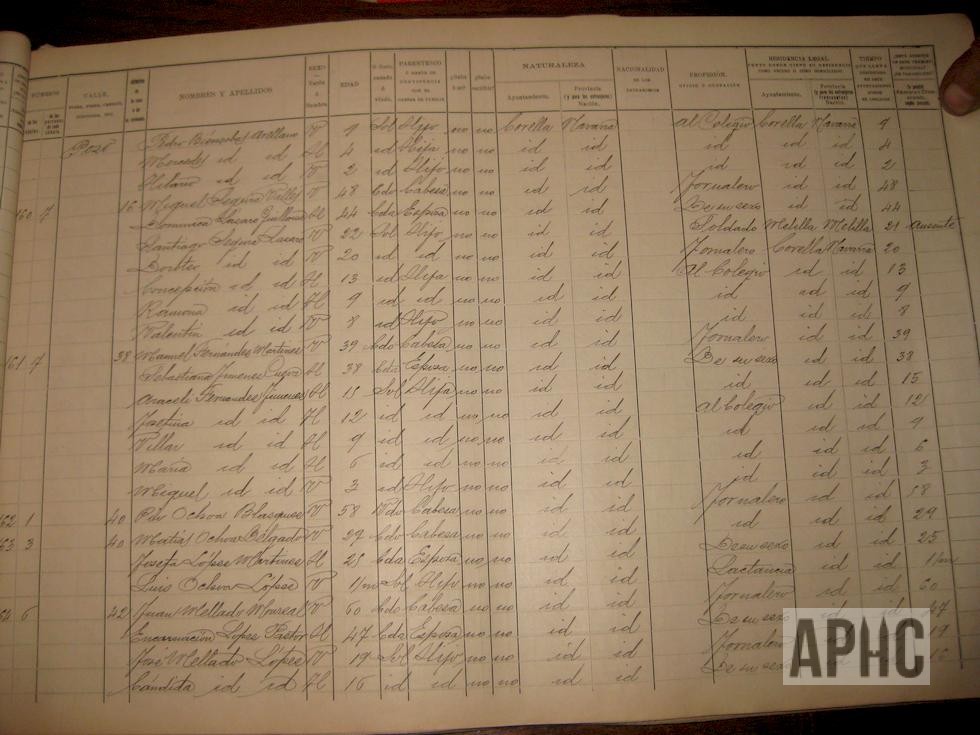 NÚMEROS CALLE, NOMBRES Y APELLIDOS SEXO Varón ó Hembra EDAD PARENTESCO NATURALEZA NACIONALIDAD PROFESIÓN, RESIDENCIA LEGAL TIEMPO
Ayuntamiento. Provincia Nación. OFICIO Ú OCUPACIÓN Ayuntamiento. Provincia Nación.
Pozo Pedro Arellano V 9 Sol Hijo no no Corella Navarra al Colegio Corella Navarra 9
Mercedes id id H 4 id Hija no no id id id id id 4
id id V 2 id Hijo no no id id id id id 2
160 7 16 Miguel Segura Vallés V 48 Cdo Cabeza no no id id Jornalero id id 48
Dominica Lazaro H 44 Cda Esposa no no id id De su sexo id id 44
Santiago Segura Lazaro V 22 Sol Hijo no no id id Soldado Melilla Melilla 21 Ausente
Doroteo id id V 20 id id no no id id Jornalero Corella Navarra 20
Concepción id id H 13 id Hija no no id id al Colegio id id 13
Ramona id id H 9 id id no no id id id id id 9
Valentin id id V 8 id Hijo no no id id id id id 8
161 7 38 Manuel Fernández Martínes V 39 Cdo Cabeza no no id id Jornalero id id 39
Sebastiana Jimenes H 38 Cda Esposa no no id id De su sexo id id 38
Araceli Fernandes Jimenes H 15 Sol Hija no no id id id id id 15
Josefina id id H 12 id id no no id id al Colegio id id 12
Pillar id id H 9 id id no no id id id id id 9
María id id H 6 id id no no id id id id id 6
Miguel id id V 3 id Hijo no no id id id id id 3
62 1 40 Ochoa Blasques V 58 Vdo Cabeza no no id id Jornalero id id 58
63 3 40 Matias Ochoa Delgado V 29 Cdo Cabeza no no id id id id id 29
Josefa López Martines H 25 Cda Esposa no no id id De su sexo id id 25
Luis Ochoa López V 1/m Sol Hijo no no id id Lactancia id id 1/m
64 6 42 Juan Mellado Monreal V 60 Cdo Cabeza no no id id Jornalero id id 60
Encarnación López Pastor H 47 Cda Esposa no no id id De su sexo 47
José Mellado López V 19 Sol Hijo no no id id Jornalero 19
Cándida id id H 16 id id no no id id De su sexo 16
APHC